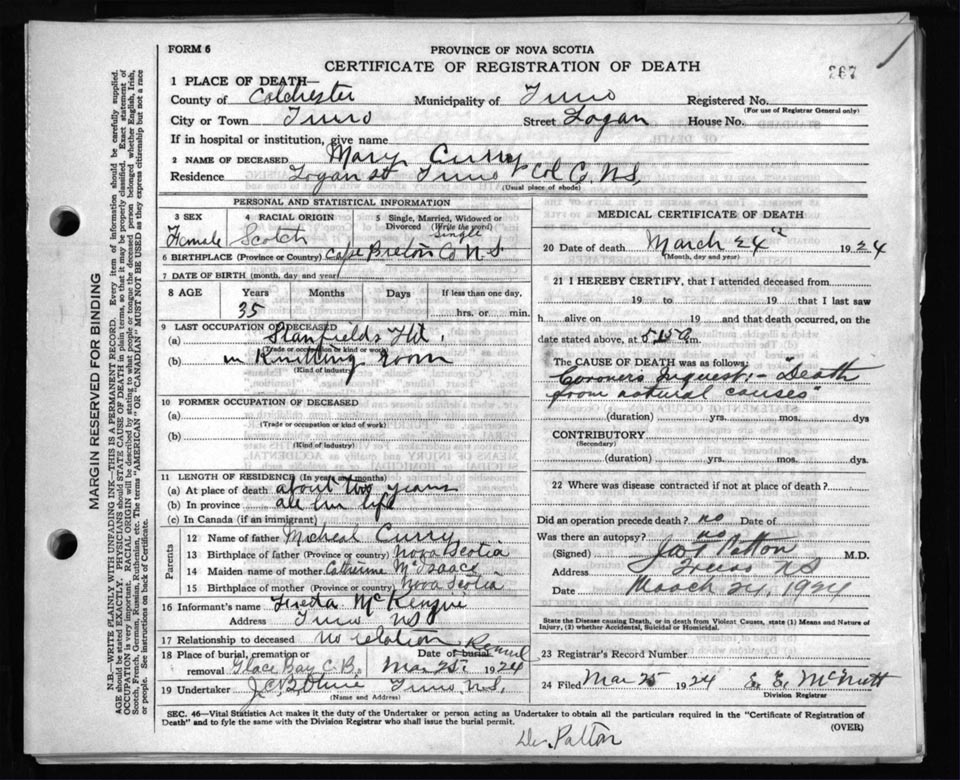 FORM 6
PROVINCE OF NOVA SCOTIA
CERTIFICATE OF REGISTRATION OF DEATH
267
1 PLACE OF DEATH—
County of Colchester Municipality of Truro Registered No.
(For use of Registrar General only)
City or Town Truro Street Logan House No.
If in hospital or institution, give name
2 NAME OF DECEASED Mary Curry
Residence Logan St Truro Col Co. N.S.
(Usual place of abode)
PERSONAL AND STATISTICAL INFORMATION
3 SEX Female
4 RACIAL ORIGIN Scotch
5 Single, Married, Widowed or Divorced (Write the word) Single
6 BIRTHPLACE (Province or Country) Cape Breton Co N S
7 DATE OF BIRTH (month, day and year)
8 AGE Years Months Days If less than one day,
35 hrs. or min.
9 LAST OCCUPATION OF DECEASED
(a) Stanfields
(Trade or occupation or kind of work)
(b) in Knitting room
(Kind of industry)
10 FORMER OCCUPATION OF DECEASED
(a)
(Trade or occupation or kind of work)
(b)
(Kind of industry)
11 LENGTH OF RESIDENCE (In years and months)
(a) At place of death about two years
(b) In province all her life
(c) In Canada (if an immigrant)
Parents
12 Name of father Micheal Curry
13 Birthplace of father (Province or country) Nova Scotia
14 Maiden name of mother Catherine McIsaac
15 Birthplace of mother (Province or country) Nova Scotia
16 Informant's name McKenzie
Address Truro N.S.
17 Relationship to deceased no relation
18 Place of burial, cremation or removal Glace Bay C.B.
Date of burial Mar 25 1924
19 Undertaker Truro N.S.
(Name and Address)
MEDICAL CERTIFICATE OF DEATH
20 Date of death March 24th 1924
(Month, day and year)
21 I HEREBY CERTIFY, that I attended deceased from
19 to 19 that I last saw
h alive on 19 and that death occurred, on the
date stated above, at m.
The CAUSE OF DEATH was as follows:
Coroners Inquest:- "Death
from natural causes"
(duration) yrs. mos. dys
CONTRIBUTORY
(Secondary)
(duration) yrs. mos. dys.
22 Where was disease contracted if not at place of death?
Did an operation precede death? no
Was there an autopsy? no
(Signed) Patton M.D.
Address Truro NS
Date March 24, 1924
State the Disease causing Death, or in death from Violent Causes, state (1) Means and Nature of Injury, (2) whether Accidental, Suicidal or Homicidal.
23 Registrar's Record Number
24 Filed Mar 25 1924 E. E. McNutt
Division Registrar
SEC. 46—Vital Statistics Act makes it the duty of the Undertaker or person acting as Undertaker to obtain all the particulars required in the "Certificate of Registration of
Death" and to fyle the same with the Division Registrar who shall issue the burial permit.
(OVER)
Dr. Patton
MARGIN RESERVED FOR BINDING
N.B.—WRITE PLAINLY WITH UNFADING INK—THIS IS A PERMANENT RECORD. Every item of information should be carefully supplied.
AGE should be stated EXACTLY. PHYSICIANS should STATE CAUSE OF DEATH in plain terms, so that it may be properly classified. Exact statement of
OCCUPATION is very important. RACIAL ORIGIN will be described by stating to what people or tongue the deceased person belonged whether English, Irish,
Scotch, French, German, Russian, Ruthenian, etc. The terms "AMERICAN" OR "CANADIAN" MUST NOT BE USED as they express citizenship but not a race
or people. See instructions on back of Certificate.